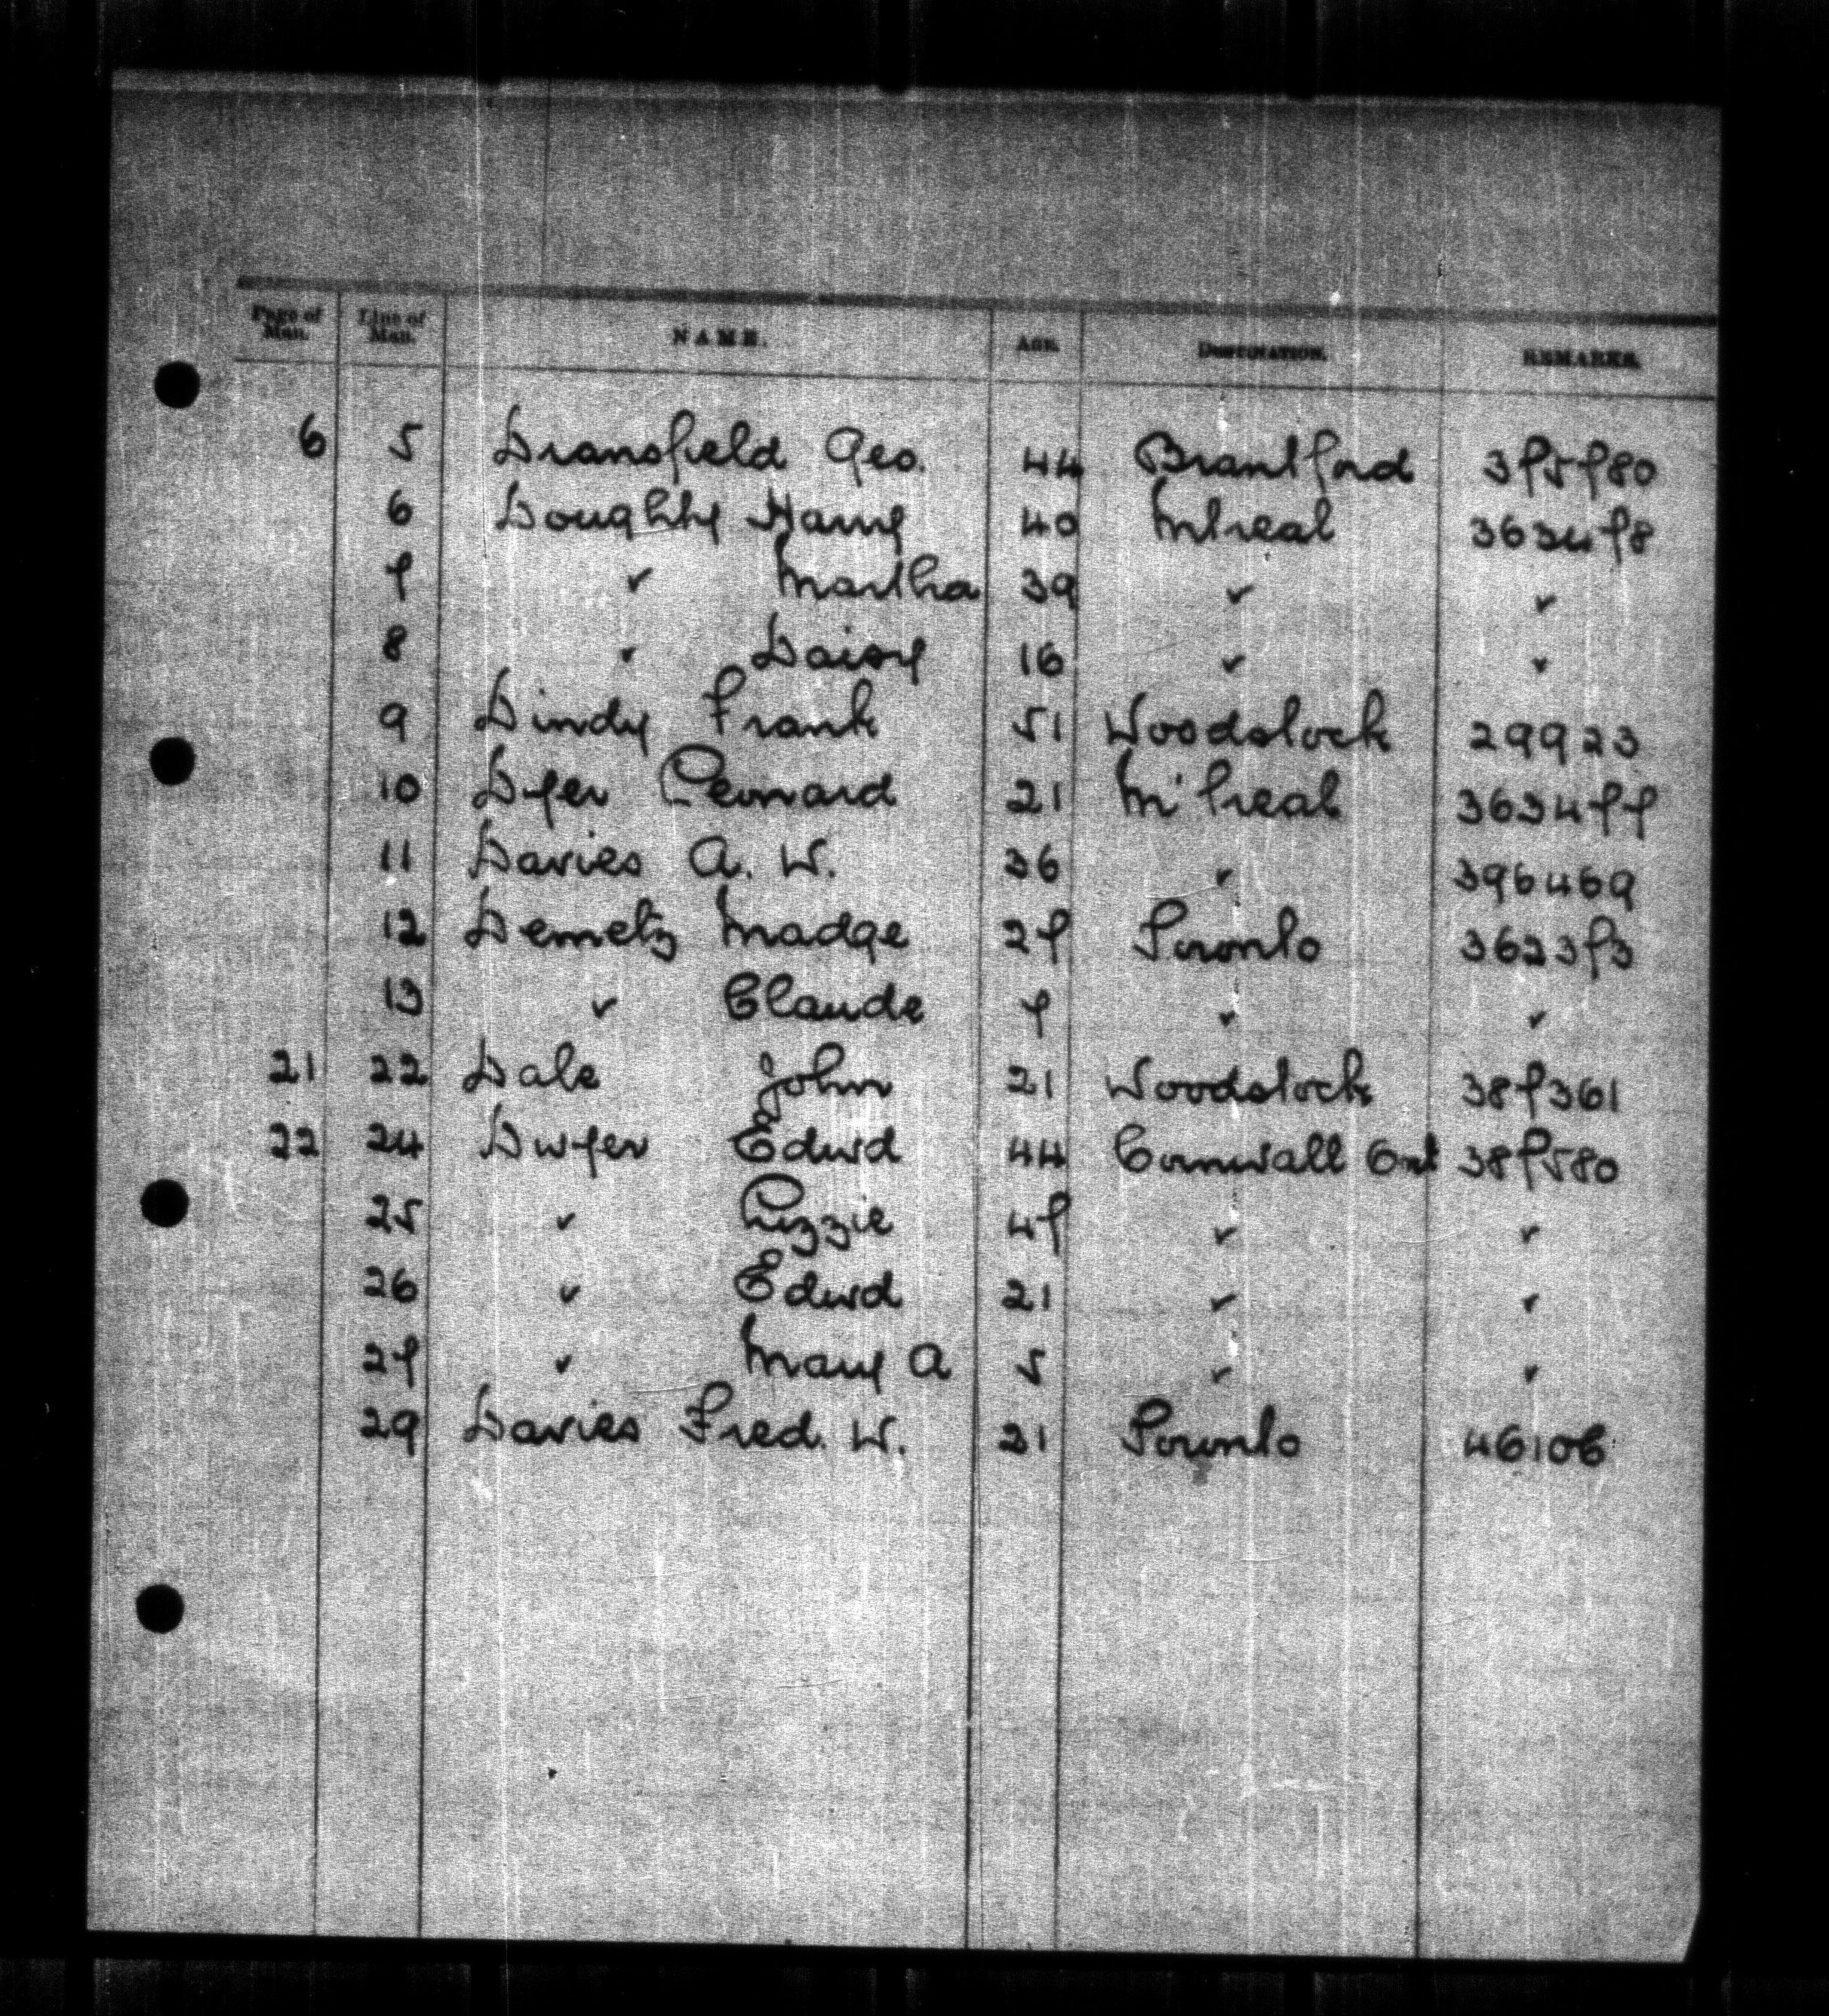 Page of Man. Line of Man. NAME. AGE. DESTINATION. REMARKS.
6 5 Dransfield Geo. 44 Brantford 375780
6 Doughty Harry 40 Mtreal 363478
7 " Martha 39 " "
8 " Daisy 16 " "
9 Dindy Frank 51 Woodstock 29923
10 Dyer Leonard 21 M'treal 363477
11 Davies A. W. 36 " 396469
12 Demetz Madge 27 Toronto 362373
13 " Claude 7 " "
21 22 Dale John 21 Woodstock 387361
22 24 Dwyer Edwd 44 Cornwall Ont 387580
25 " Lizzie 47 " "
26 " Edwd 21 " "
27 " Mary A 5 " "
29 Davies Fred. W. 21 Toronto 46106